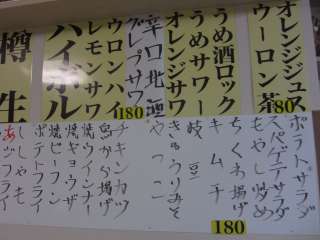 オレンジジュース
ウーロン茶
80
うめ酒ロック
うめサワー
オレンジサワー
グレープサワー
180
ウーロンハイ
レモンサワー
ハイボール
樽生
ポテトサラダ
スパゲテサラダ
もやし炒め
ちくわ揚げ
キムチ
枝豆
やっこ
きゅうりみそ
180
チキンカツ
鳥から揚げ
赤ウインナー
焼ギョウザ
焼ビーフン
ポテトフライ
ししゃも
あじフライ